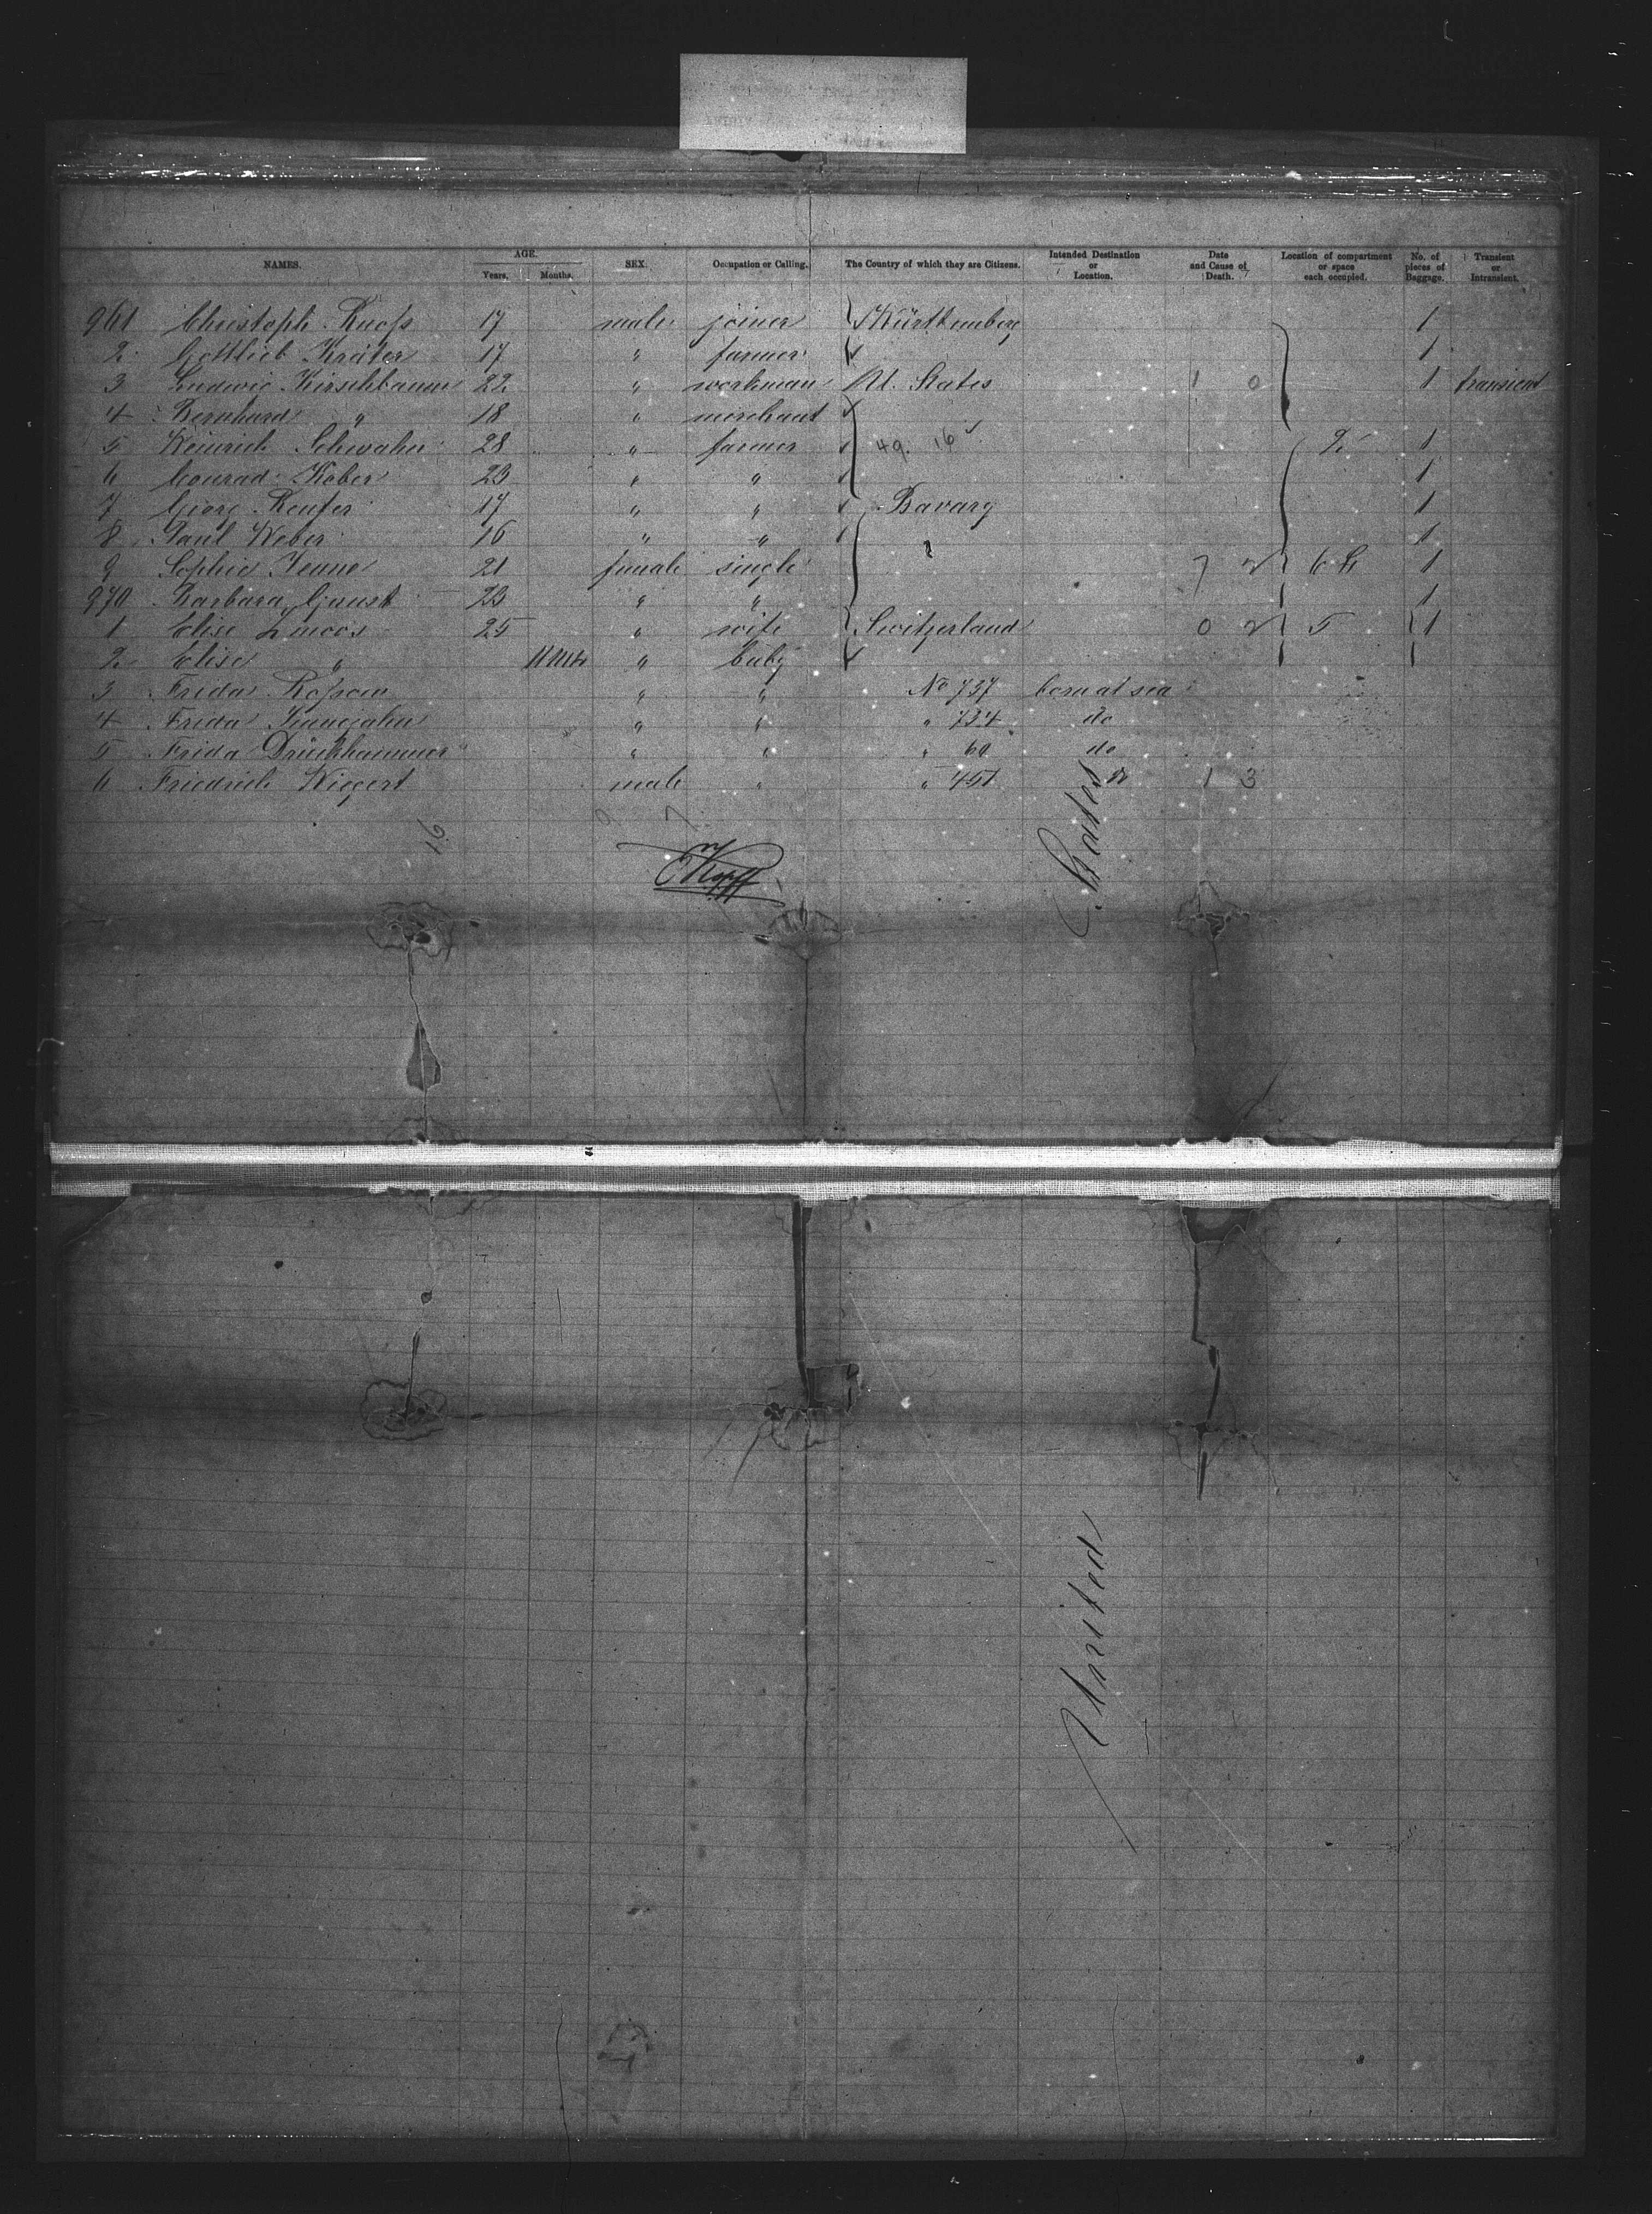 NAMES. AGE. Years. Months. SEX. Occupation or Calling. The Country of which they are Citizens. Intended Destination or Location. Date and Cause of Death. Location of compartment or space each occupied. No. of pieces of Baggage. Transient or Intransient.
961 Christoph 17 male joiner Württemberg 1
2 Gottlieb Kräter 17 " farmer 1
3 Ludwig Kirschbaum 22 " workman U. States 1 0 1 transient
4 Bernhard " 18 " merchant
5 Heinrich Schwahn 28 " farmer 49. 16 2 1
6 Conrad Kober 23 " " 1
7 Georg Reufer 17 " " Bavary 1
8 Paul Weber 16 " " 1
9 Sophie Jenne 21 female single 7 2 1
970 Barbara 23 " " 1
1 Elise 25 " wife Switzerland 0 2 5 1
2 Elise " " baby
3 Frida " " No 737 born at sea
4 Frida " " " 734 do
5 Frida Drückhammer " " " 60 do
6 Friedrich Wiegert male " " 451 do 1 3
16 7
United States